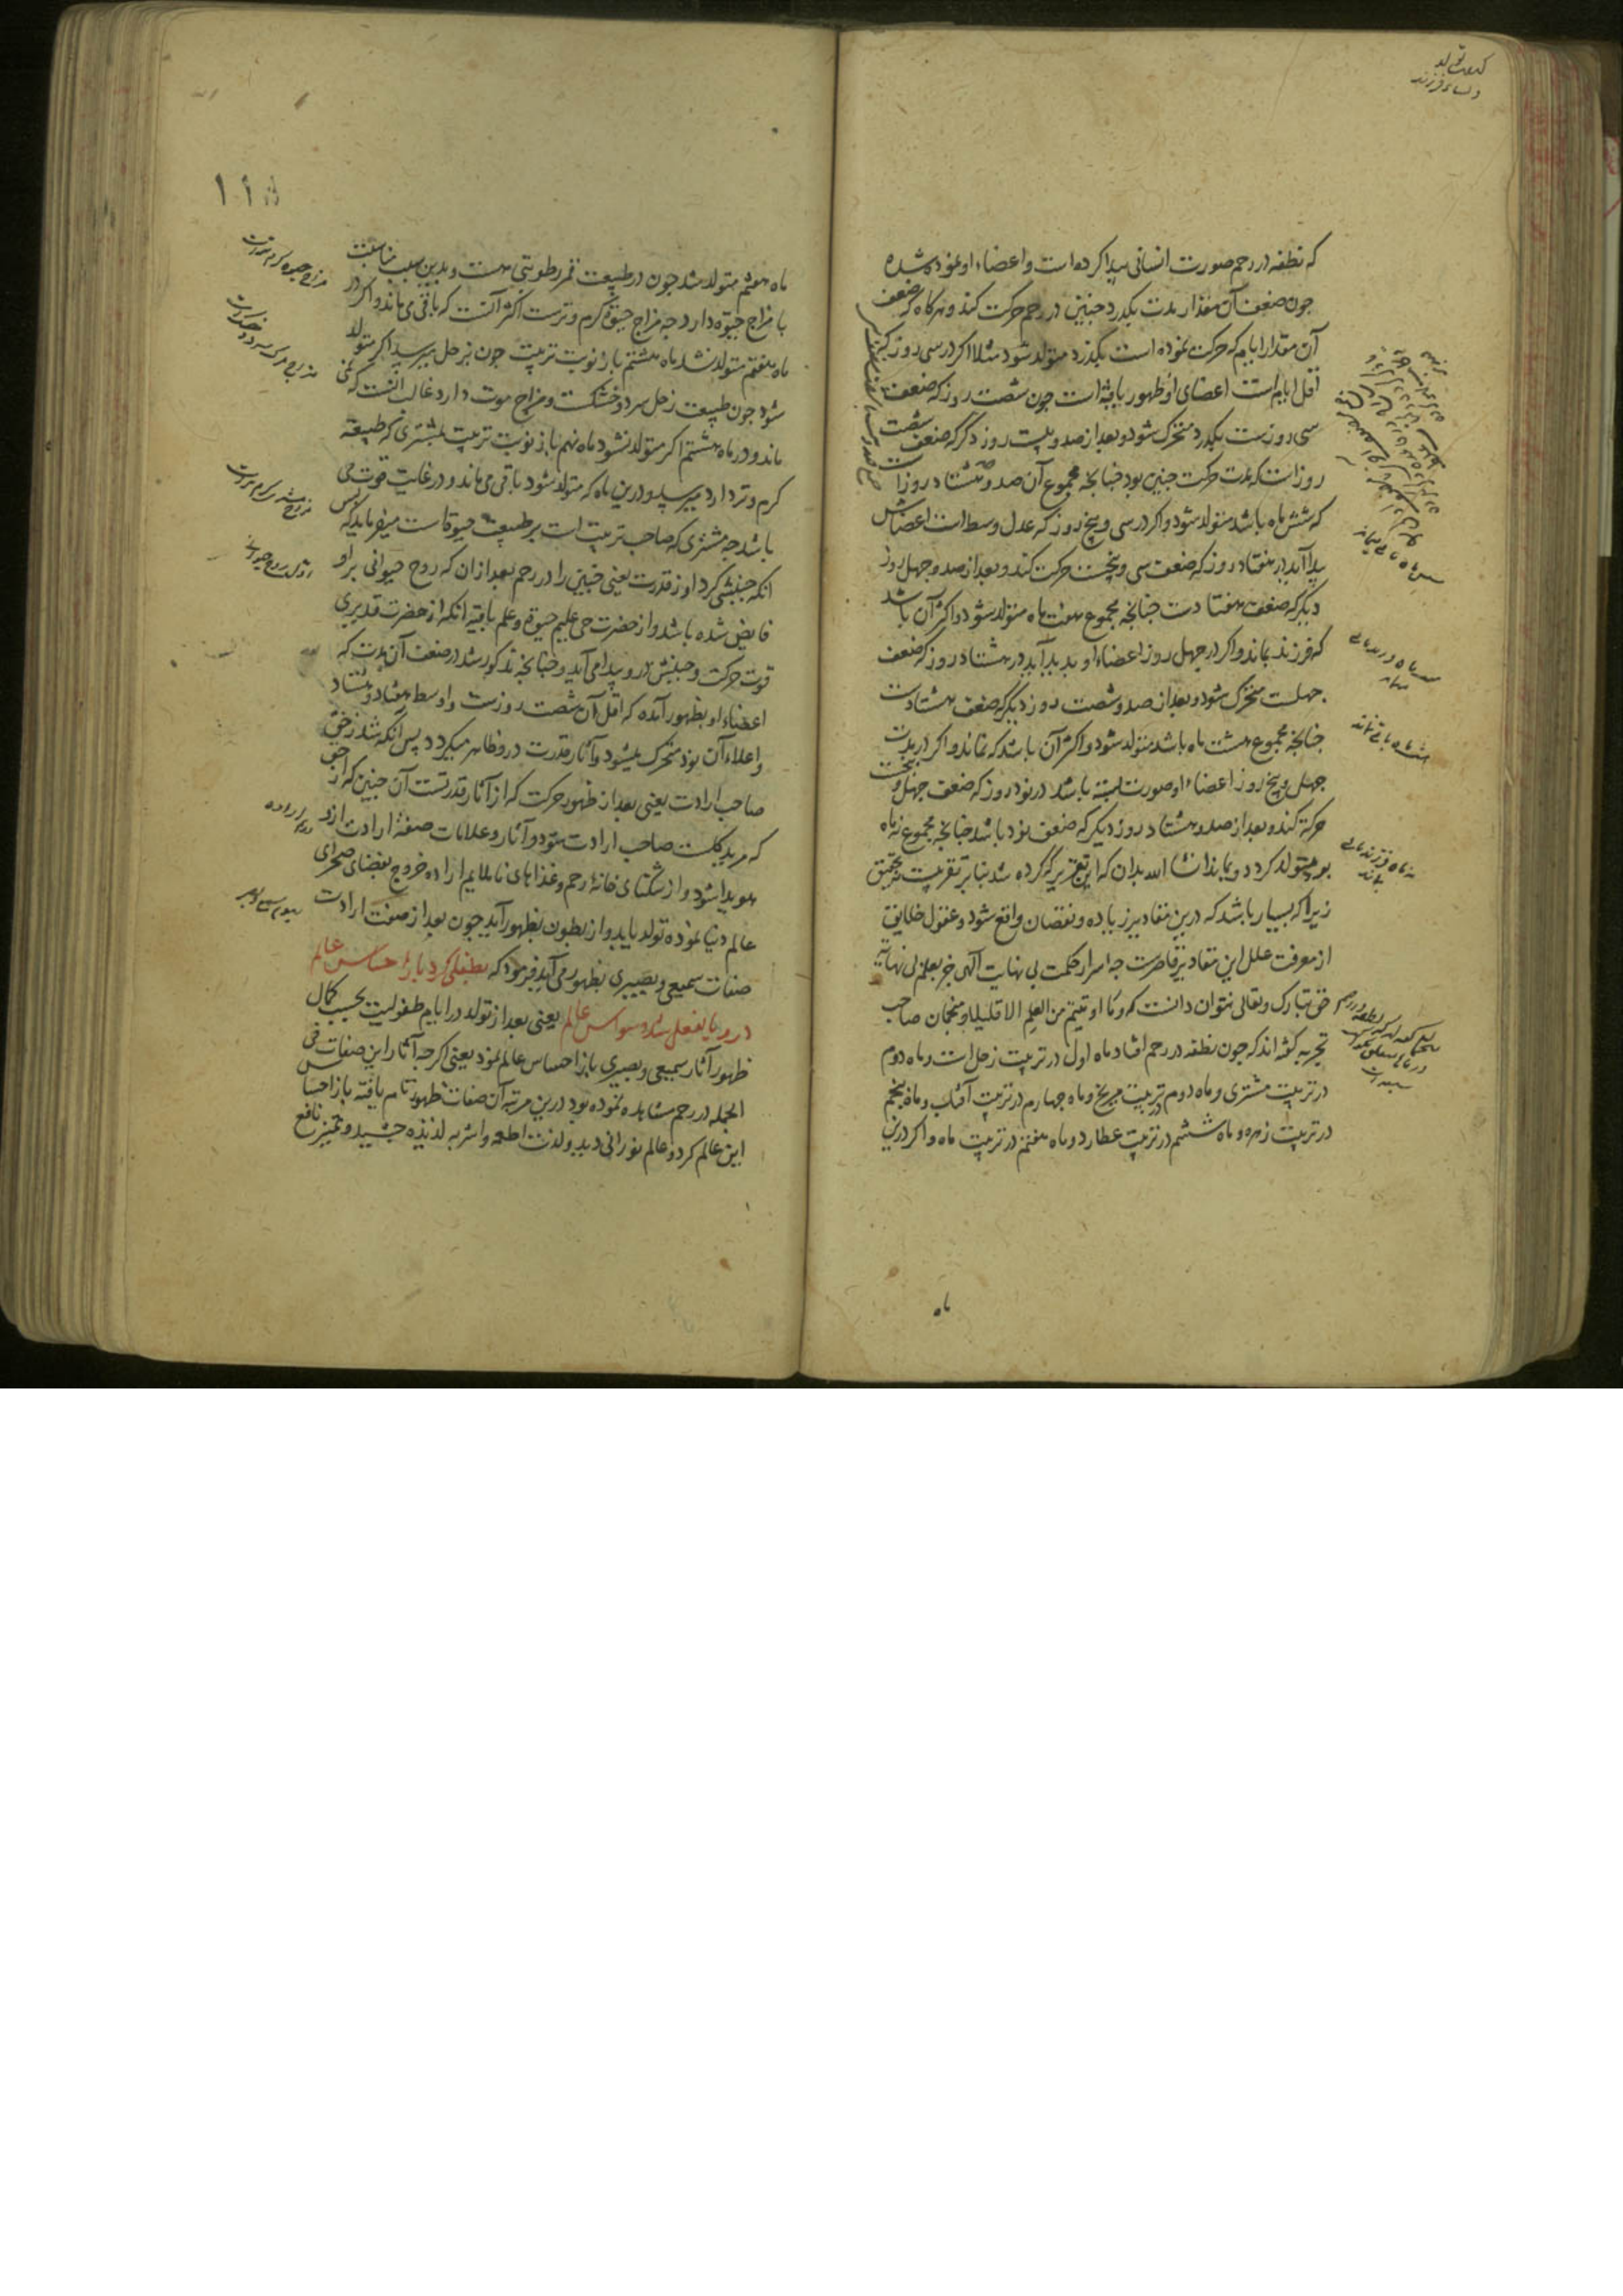 که نطفه در رحم صورت انسانی پیدا کرده است و اعضاء او نموده شده
چون ضعف آن مقدار مدت بگذرد جنین در رحم حرکت کند و هرگاه که ضعف
آن مقدار ایام که حرکت نموده است بگذرد متولد شود مثلا اگر در سی روز که
اقل ایام است اعضای او ظهور یافته است چون شصت روز که ضعف
سی روزست بگذرد متحرک شود و بعد از صد و بیست روز دگر که ضعف شصت
روز است که مدت حرکت جنین بود چنانچه مجموع آن صد و هشتاد روز است
که شش ماه باشد متولد شود و اگر در سی و پنج روز که عدل وسط است اعضاش
پیدا آید در هفتاد روز که ضعف سی و پنجست حرکت کند و بعد از صد و چهل روز
دیگر که ضعف هفتادست چنانچه مجموع هفت ماه متولد شود و اکثر آن باشد
که فرزند بماند و اگر در چهل روز اعضاء او پدید آید در هشتاد روز که ضعف
چهلست متحرک شود و بعد از صد و شصت روز دیگر که ضعف هشتادست
چنانچه مجموع هشت ماه باشد متولد شود و اکثر آن باشد که نماند و اگر در مدت
چهل و پنج روز اعضاء او صورت بسته باشد در نود روز که ضعف چهل و پنجست
حرکة کند و بعد از صد و هشتاد روز دیگر که ضعف نود باشد چنانچه مجموع نه ماه
بود متولد گردد و بماند انشا الله بدان که این تقریر که کرده شد بنا بر تقریبست نه تحقیق
زیرا که بسیار باشد که درین مقادیر زیاده و نقصان واقع شود و عقول خلایق
از معرفت علل این مقادیر قاصرست چه اسرار حکمت بی نهایت الهی جز بعلم بی نهایة
حق تبارک و تعالی نتوان دانست که و ما اوتیتم من العلم الا قلیلا و منجمان صاحب
تجربه گفته اند که چون نطفه در رحم افتاد ماه اول در تربیت زحل است و ماه دوم
در تربیت مشتری و ماه دوم در تربیت مریخ و ماه چهارم در تربیت آفتاب و ماه پنجم
در تربیت زهره و ماه ششم در تربیت عطارد و ماه هفتم در تربیت ماه و اگر درین
ماه
ماه هفتم متولد شد چون در طبیعت قمر رطوبتی هست و بدین سبب مناسبت
با مزاج حیوة دارد چه مزاج حیوة گرم و ترست اکثر آنست که باقی می ماند و اگر در
ماه هفتم متولد نشد ماه هشتم باز نوبت تربیت چون بزحل میرسد اگر متولد
شود چون طبیعت زحل سرد و خشکست و مزاج موت دارد غالب آنست که نمی
ماند و در ماه هشتم اگر متولد نشود ماه نهم باز نوبت تربیت بمشتری که طبیعة
گرم و تر دارد میرسد و درین ماه که متولد شود باقی می ماند و در غایت قوت می
باشد چه مشتری که صاحب تربیت است بر طبیعت حیوة است میفرماید که پس
آنکه جنبشی کرد او ز قدرت یعنی جنین را در رحم بعد از آن که روح حیوانی برو
فایض شده باشد و از حضرت حی علیم حیوة و علم یافته آنکه از حضرت قدیری
قوت حرکت و جنبش درو پیدا می آید و چنانچه مذکور شد در ضعف آن مدت که
اعضاء او بظهور آمده که اقل آن شصت روزست و اوسط هفتاد و هشتاد
و اعلاء آن نود متحرک میشود و آثار قدرت درو ظاهر میگردد پس آنکه شد ز حق
صاحب ارادت یعنی بعد از ظهور حرکت که از آثار قدرتست آن جنین که از حق
که مرید کلست صاحب ارادت شود و آثار و علامات صفة ارادت ازو
هویدا شود و از تنگنای خانۀ رحم و غذاهای ناملایم اراده خروج بفضای صحرای
عالم دنیا نموده تولد یابد و از بطون بظهور آید چون بعد از صفت ارادت
صفات سمیعی و بصیری بظهور می آید فرمود که بطفلی کرد باز احساس عالم
درو بالفعل شد وسواس عالم یعنی بعد از تولد در ایام طفولیت بحسب کمال
ظهور آثار سمیعی و بصیری باز احساس عالم نمود یعنی اگرچه آثار این صفات فی
الجمله در رحم مشاهده نموده بود درین مرتبه آن صفات ظهور تام یافته باز احساس
این عالم کرد و عالم نورانی دید و لذت اطعمه و اشربه لذیذه چشید و تمییز نافع